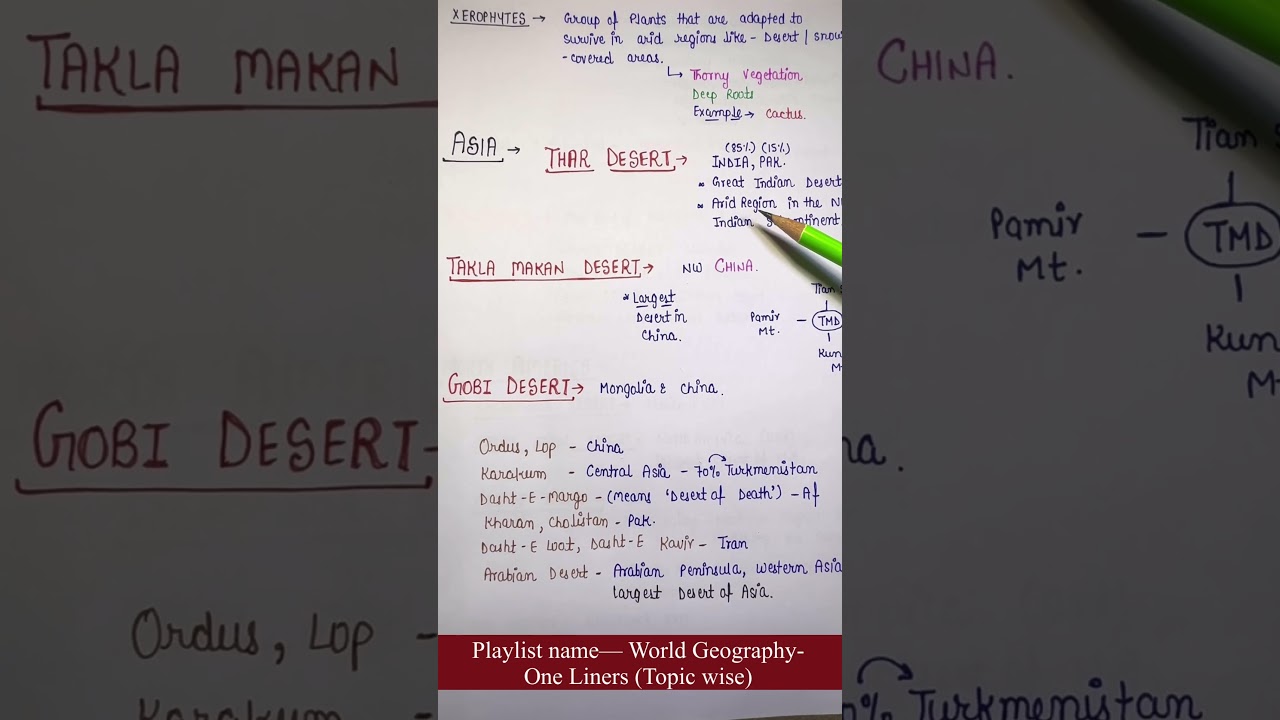 XEROPHYTES → Group of Plants that are adapted to
survive in arid regions like - Desert / snow
- covered areas.
Thorny Vegetation
Deep Roots
Example → Cactus.
ASIA →
(85%) (15%)
THAR DESERT → INDIA, PAK.
* Great Indian Desert
* Arid Region in the N
Indian
TAKLA MAKAN DESERT → NW CHINA.
* Largest
Desert in
China.
Tian
Pamir — TMD
Mt.
Kun
M
GOBI DESERT → Mongolia & China.
Ordus, Lop - China
Karakum - Central Asia - 70% Turkmenistan
Dasht-E-margo - (means 'Desert of Death') - Af
Kharan, Cholistan - Pak.
Dasht-E Loot, Dasht-E Kavir - Iran
Arabian Desert - Arabian Peninsula, Western Asia
largest Desert of Asia.
Playlist name— World Geography-
One Liners (Topic wise)
TAKLA MAKAN
GOBI DESERT-
Ordus, Lop -
Karakum -
CHINA.
Tian
Pamir — TMD
Mt.
Kun
M
na.
0% Turkmenistan